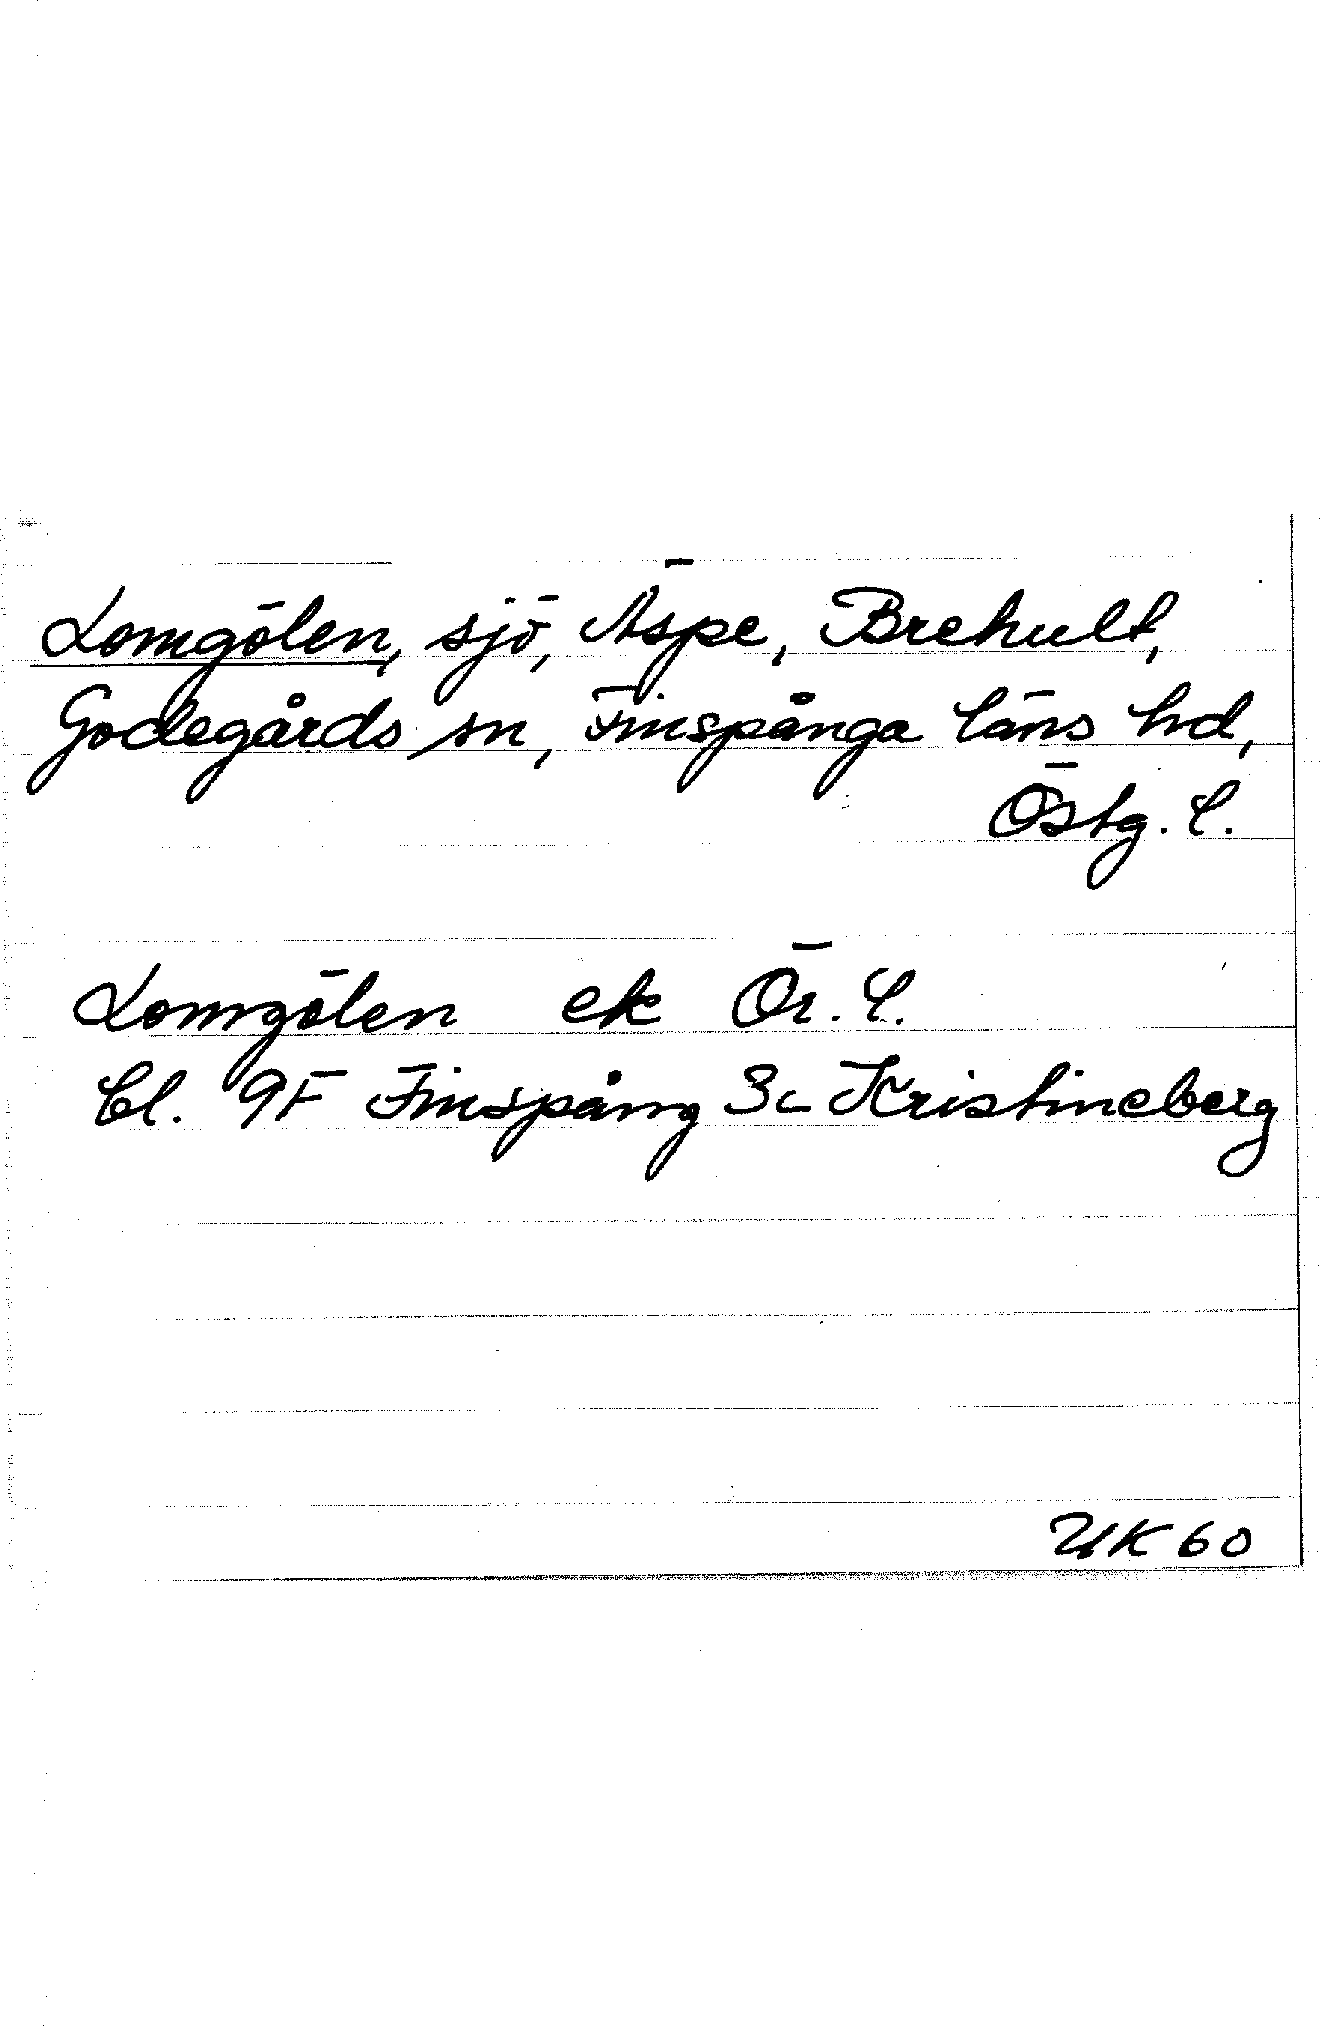 Lomgölen, sjö, Äspe, Brehult,
Godegårds sn, Finspånga läns hd,
Östg. l.
Lomgölen ek Ör. l.
bl. 9F Finspång 3c Kristineberg
UK 60